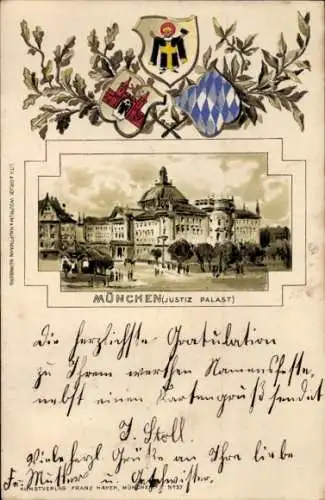 MÜNCHEN (JUSTIZ PALAST)
Die herzlichste Gratulation
zu Ihrem werthen Namensfeste,
nebst einen Kartengruß sendet
J. Stoll.
Viele herzl. Grüße an Ihre liebe
Fr. Mutter u. Geschwister.
KUNSTVERLAG FRANZ MAYER, MÜNCHEN. Nº 37